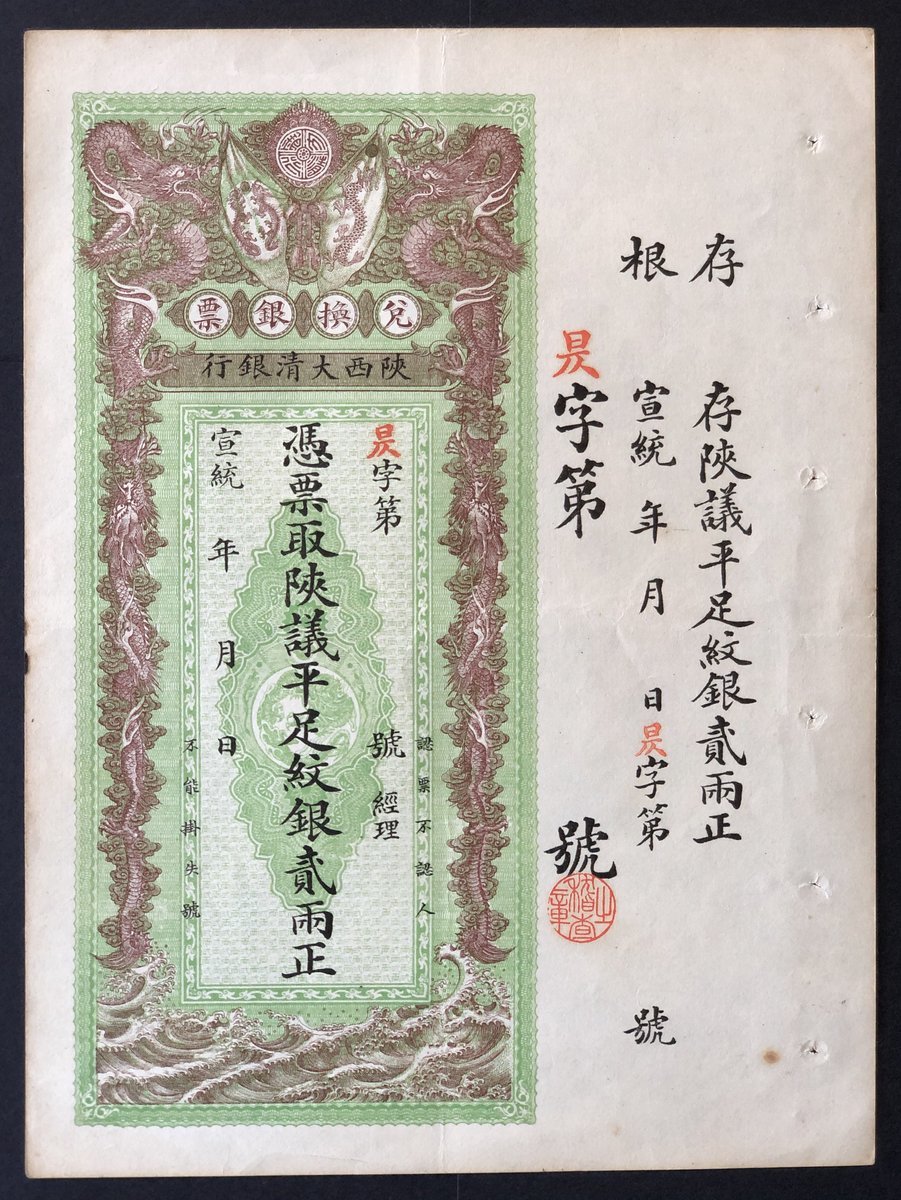 存 存陝議平足紋銀貳兩正
根 宣統 年 月 日 昃字第 號
昃字第 號
稽查之章
兌換銀票
陝西大清銀行
認票不認人
昃字第 號 經理
憑票取陝議平足紋銀貳兩正
宣統 年 月 日
不能掛失號